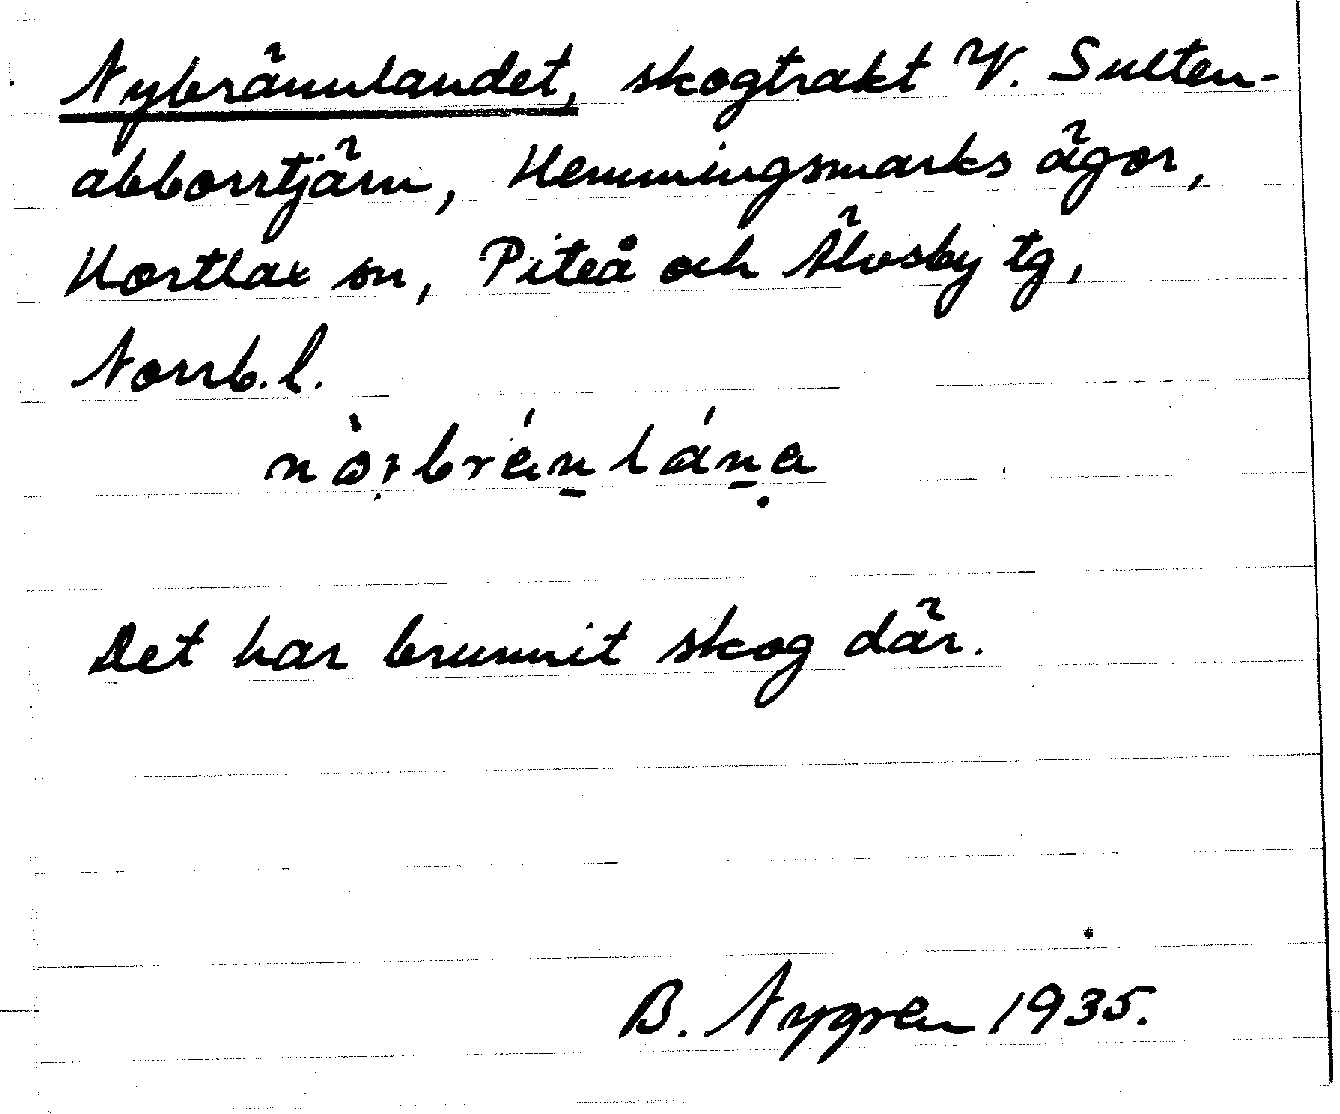 Nybrännlandet, skogtrakt V. Sulten-
abborrtjärn, Hemmingsmarks ägor,
Hortlax sn, Piteå och Älvsby tg,
Norrb. l.
Det har brunnit skog där.
B. Nygren 1935.